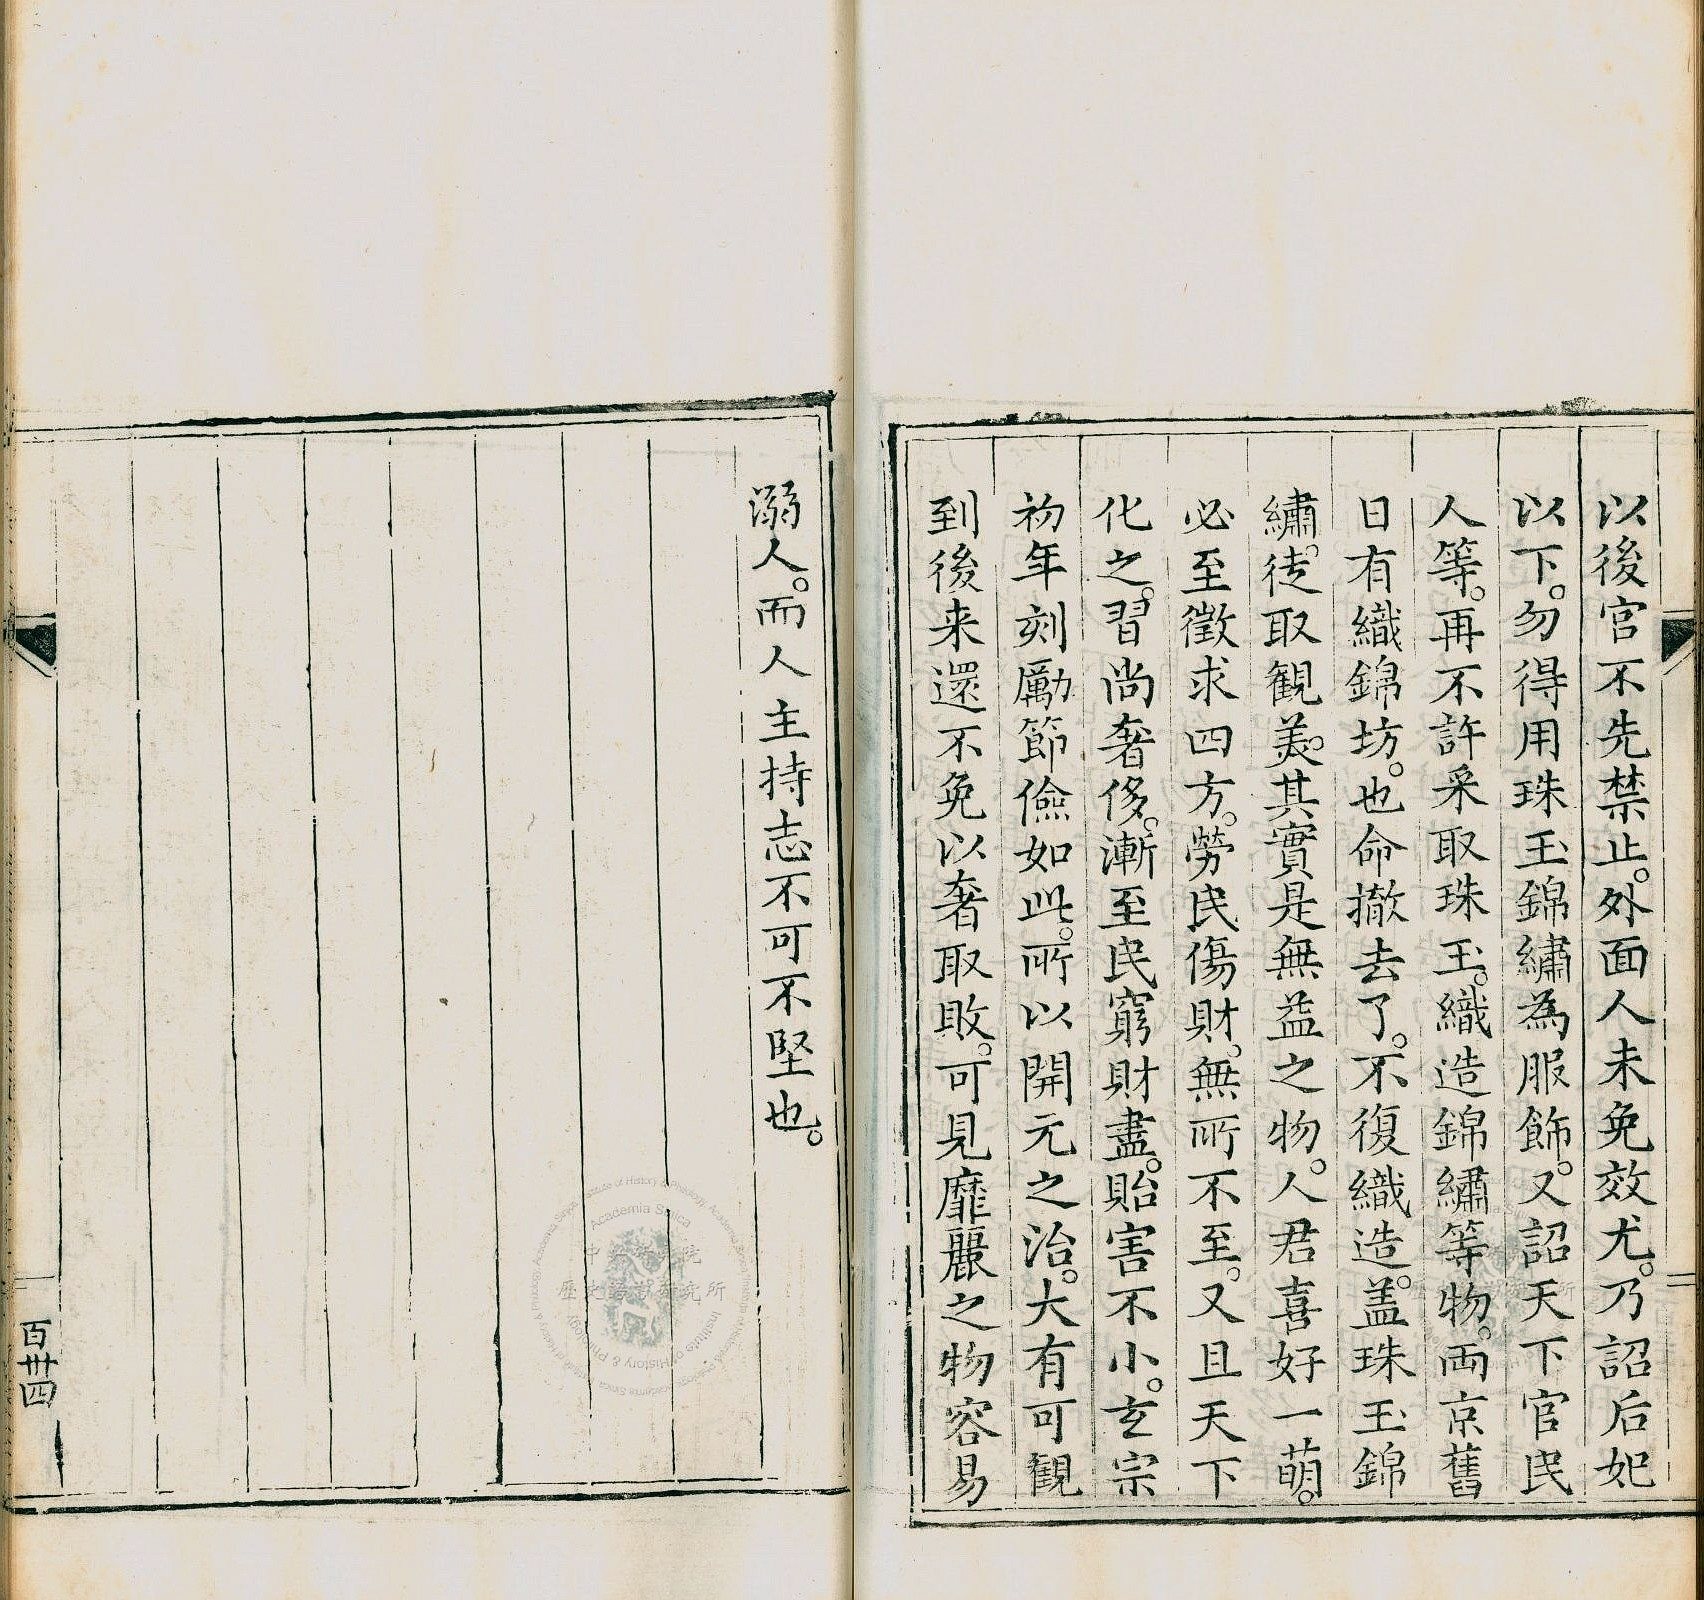 以後宮不先禁止。外面人未免效尤。乃詔后妃
以下。勿得用珠玉錦繡為服飾。又詔天下官民
人等。再不許采取珠玉。織造錦繡等物。両京舊
日有織錦坊。也命撤去了。不復織造。盖珠玉錦
繡。徒取觀美。其實是無益之物。人君喜好一萌。
必至徵求四方。勞民傷財。無所不至。又且天下
化之。習尚奢侈。漸至民窮財盡。貽害不小。玄宗
初年刻勵節儉如此。所以開元之治。大有可觀
到後来還不免以奢取敗。可見靡麗之物容易
溺人。而人主持志不可不堅也。
百卅四
中央研究院
歷史語言研究所
Academia Sinica
Institute of History & Philology